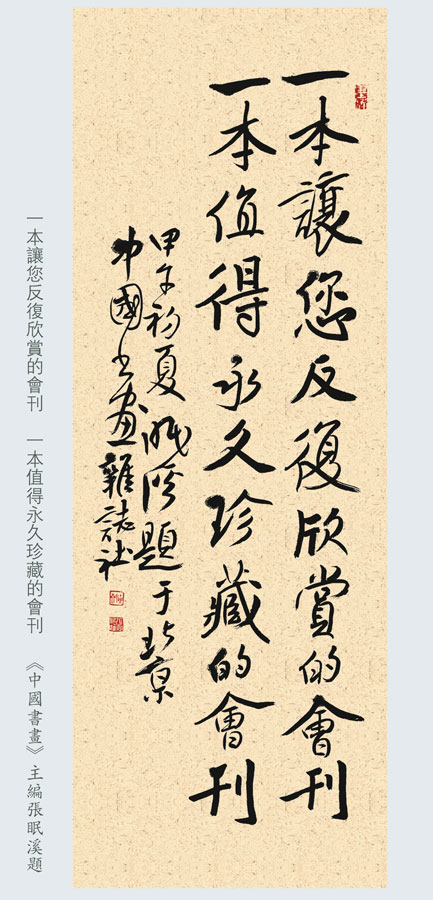 一本讓您反復欣賞的會刊
一本值得永久珍藏的會刊
甲午初夏眠溪題于北京
中國书画雜誌社
一本讓您反復欣賞的會刊 一本值得永久珍藏的會刊 《中國書畫》主編張眠溪題